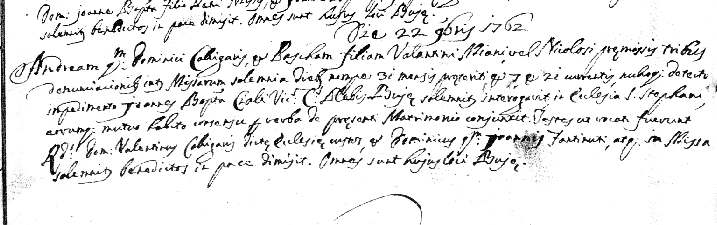 Dom: Joanne Bapta filio
solemnit benedictos in pace dimisit. Omnes sunt hujus loci Bujæ.
Die 22 9bris 1762
Andream qm Dominici Calligaris, et Bascham filiam Valentini Nicolosi, præmissis tribus
denunciaonib, inter Missarum solemnia diebus nempe 31 mensis præteriti, et 7, et 21 currentis, nulloq; detecto
impedimento Joannes Bapta Vic: C. Plebis Bujæ solemnit interrogavit in Ecclesia S. Stephani,
eorumq; mutuo habito consensu p verba de præsenti Matrimonio conjunxit. Testes ut vocati fuerunt
Rdus Dom: Valentinus Calligaris dictæ Ecclesiæ et Dominicus qm Joannis Fantinuti, atq; in Missa
solemnit benedictos in pace dimisit. Omnes sunt hujus loci Bujæ.